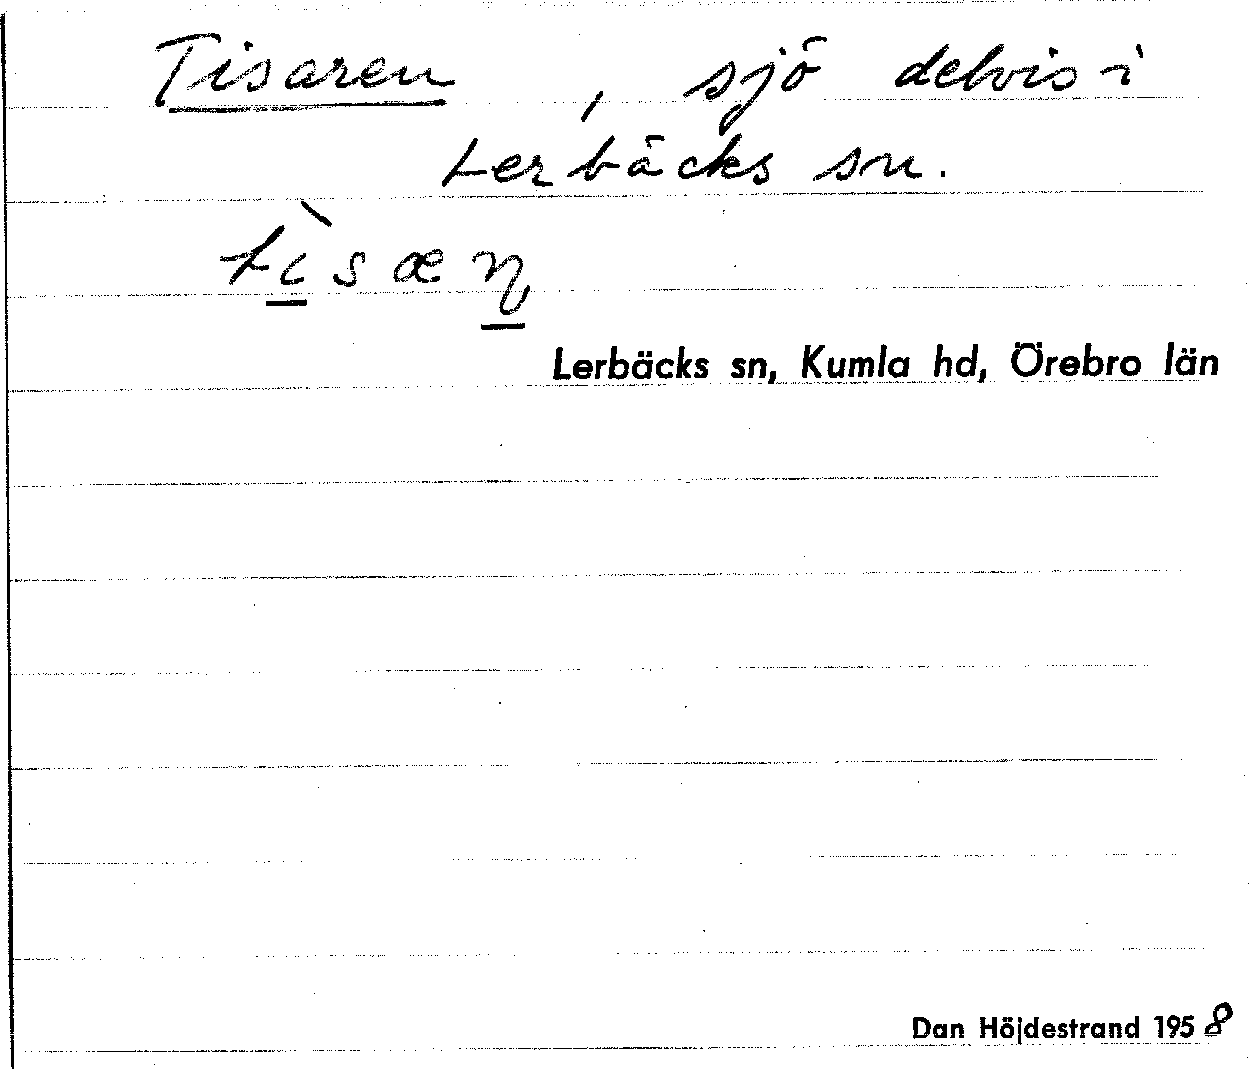 Tisaren, sjö delvis i
Lerbäcks sn.
tìsæɳ
Lerbäcks sn, Kumla hd, Örebro län
Dan Höjdestrand 1958